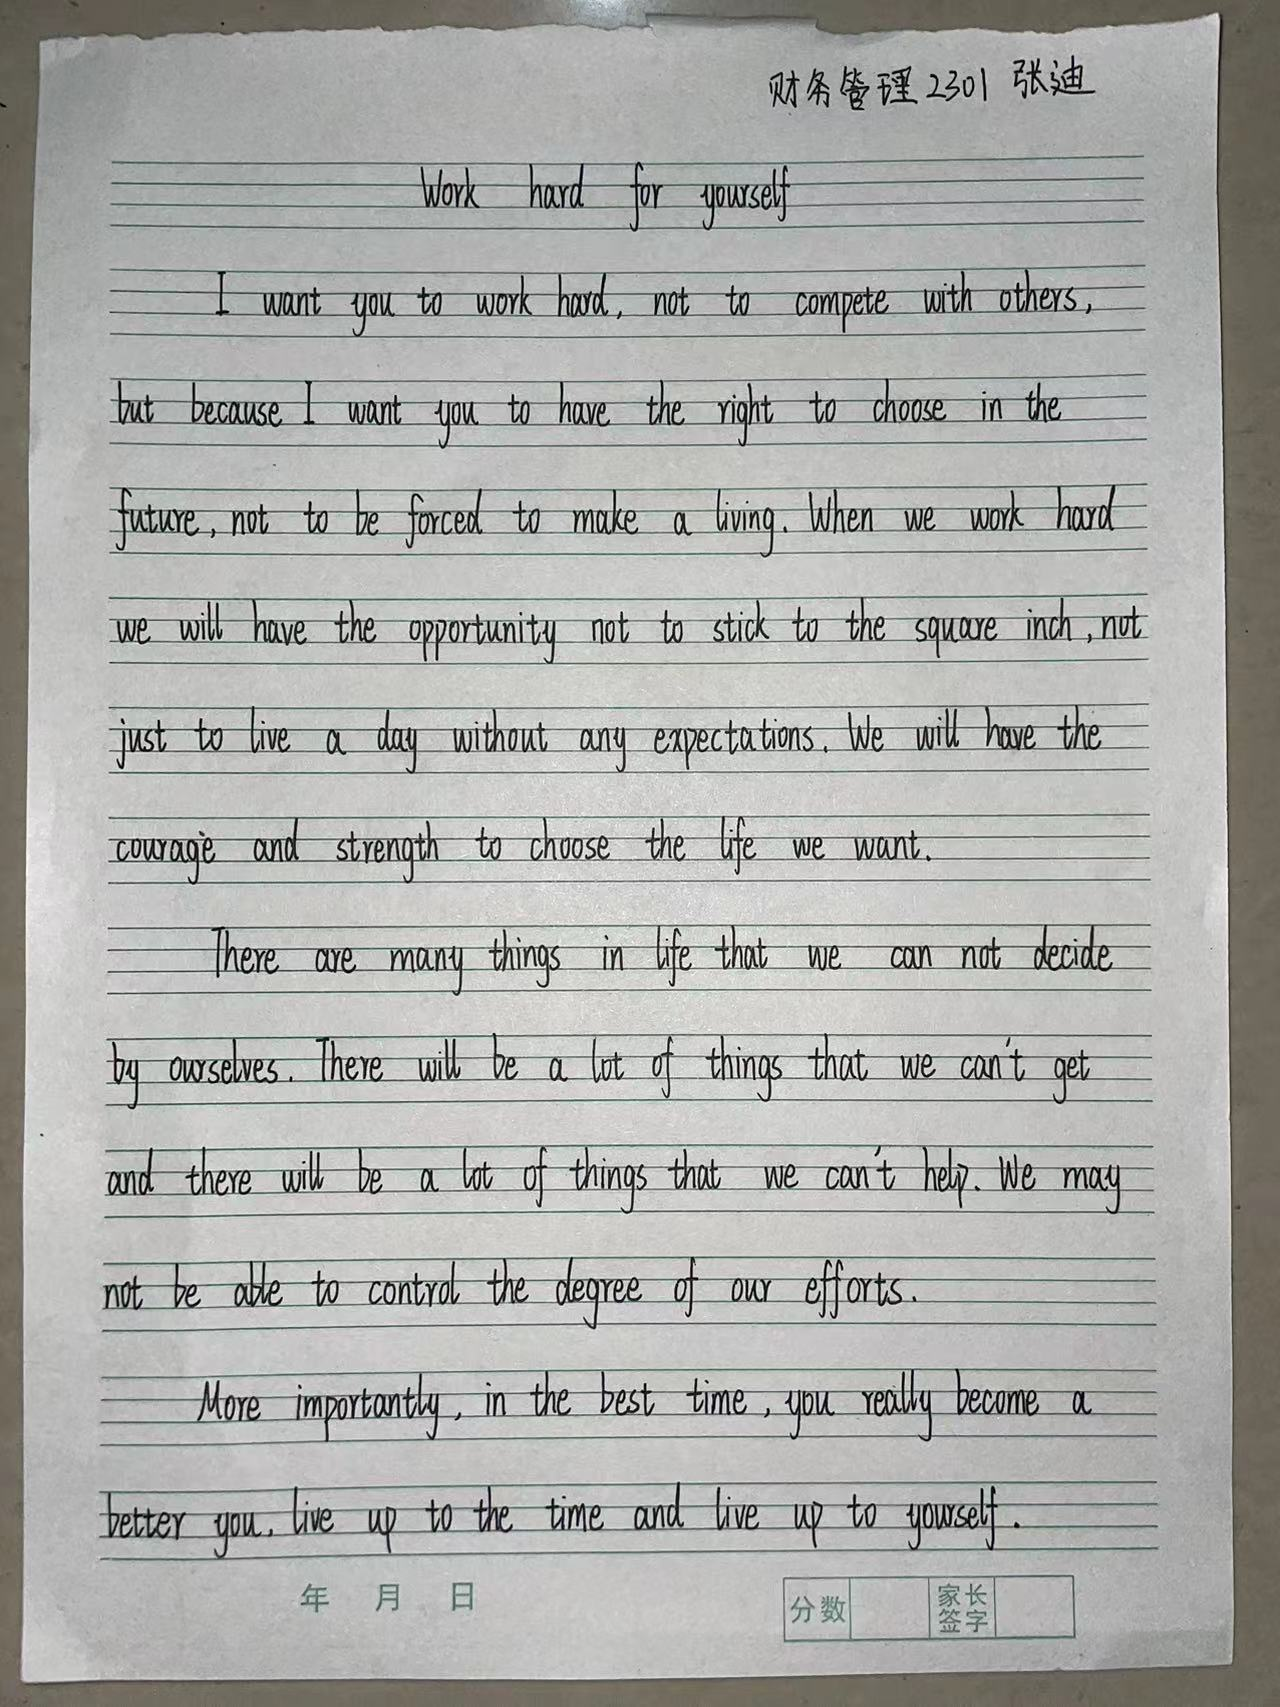 财务管理2301 张迪
Work hard for yourself
I want you to work hard, not to compete with others,
but because I want you to have the right to choose in the
future, not to be forced to make a living. When we work hard
we will have the opportunity not to stick to the square inch, not
just to live a day without any expectations. We will have the
courage and strength to choose the life we want.
There are many things in life that we can not decide
by ourselves. There will be a lot of things that we can't get
and there will be a lot of things that we can't help. We may
not be able to control the degree of our efforts.
More importantly, in the best time, you really become a
better you. live up to the time and live up to yourself.
年 月 日
分数 家长签字